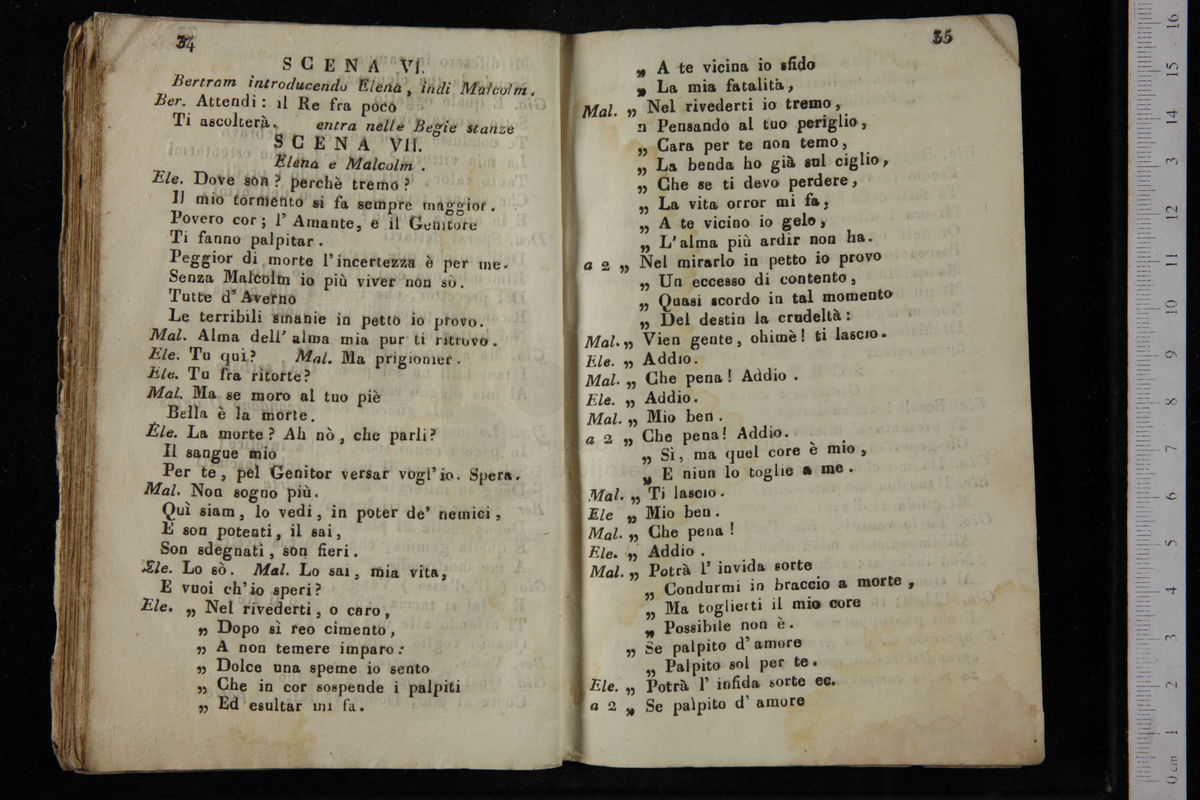 34
SCENA VI.
Bertram introducendo Elena, indi Malcolm.
Ber. Attendi: il Re fra poco
Ti ascolterà. entra nelle Begie stanze
SCENA VII.
Elena e Malcolm.
Ele. Dove son? perchè tremo?
Il mio tormento si fa sempre maggior.
Povero cor; l'Amante, e il Genitore
Ti fanno palpitar.
Peggior di morte l'incertezza è per me.
Senza Malcolm io più viver non sò.
Tutte d'Averno
Le terribili smanie in petto io provo.
Mal. Alma dell'alma mia pur ti ritrovo.
Ele. Tu qui? Mal. Ma prigionier.
Ele. Tu fra ritorte?
Mal. Ma se moro al tuo piè
Bella è la morte.
Ele. La morte? Ah nò, che parli?
Il sangue mio
Per te, pel Genitor versar vogl'io. Spera.
Mal. Non sogno più.
Quì siam, lo vedi, in poter de' nemici,
E son potenti, il sai,
Son sdegnati, son fieri.
Ele. Lo sò. Mal. Lo sai, mia vita,
E vuoi ch'io speri?
Ele. „ Nel rivederti, o caro,
„ Dopo sì reo cimento,
„ A non temere imparo:
„ Dolce una speme io sento
„ Che in cor sospende i palpiti
„ Ed esultar mi fa.
35
„ A te vicina io sfido
„ La mia fatalità,
Mal. „ Nel rivederti io tremo,
n Pensando al tuo periglio,
„ Cara per te non temo,
„ La benda ho già sul ciglio,
„ Che se ti devo perdere,
„ La vita orror mi fa,
„ A te vicino io gelo,
„ L'alma più ardir non ha.
a 2 „ Nel mirarlo in petto io provo
„ Un eccesso di contento,
„ Quasi scordo in tal momento
„ Del destin la crudeltà:
Mal. „ Vien gente, ohimè! ti lascio.
Ele. „ Addio.
Mal. „ Che pena! Addio.
Ele. „ Addio.
Mal. „ Mio ben.
a 2 „ Che pena! Addio.
„ Si, ma quel core è mio,
„ E niun lo toglie a me.
Mal. „ Ti lascio.
Ele „ Mio ben.
Mal. „ Che pena!
Ele. „ Addio.
Mal. „ Potrà l'invida sorte
„ Condurmi in braccio a morte,
„ Ma toglierti il mio core
„ Possibile non è.
„ Se palpito d'amore
„ Palpito sol per te.
Ele. „ Potrà l'infida sorte ec.
a 2 „ Se palpito d'amore
0 cm 1 2 3 4 5 6 7 8 9 10 11 12 13 14 15 16